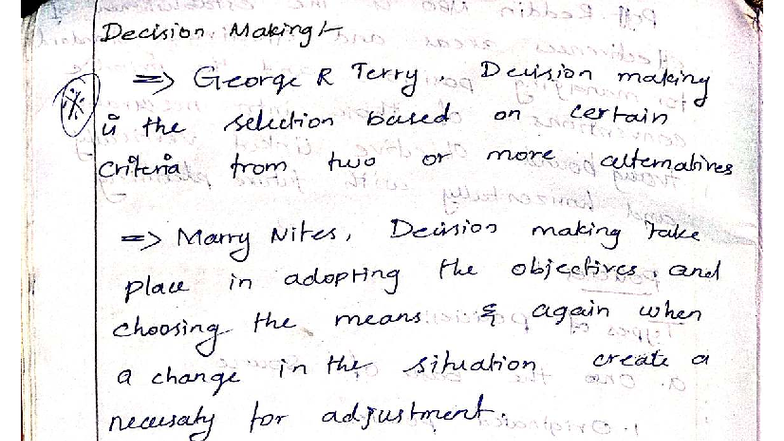 Decision Making :-
=> George R Terry, Decision making
is the selection based on certain
criteria from two or more alternatives
=> Marry Nites, Decision making take
place in adopting the objectives, and
choosing the means & again when
a change in the situation create a
necusaty for adjustment.